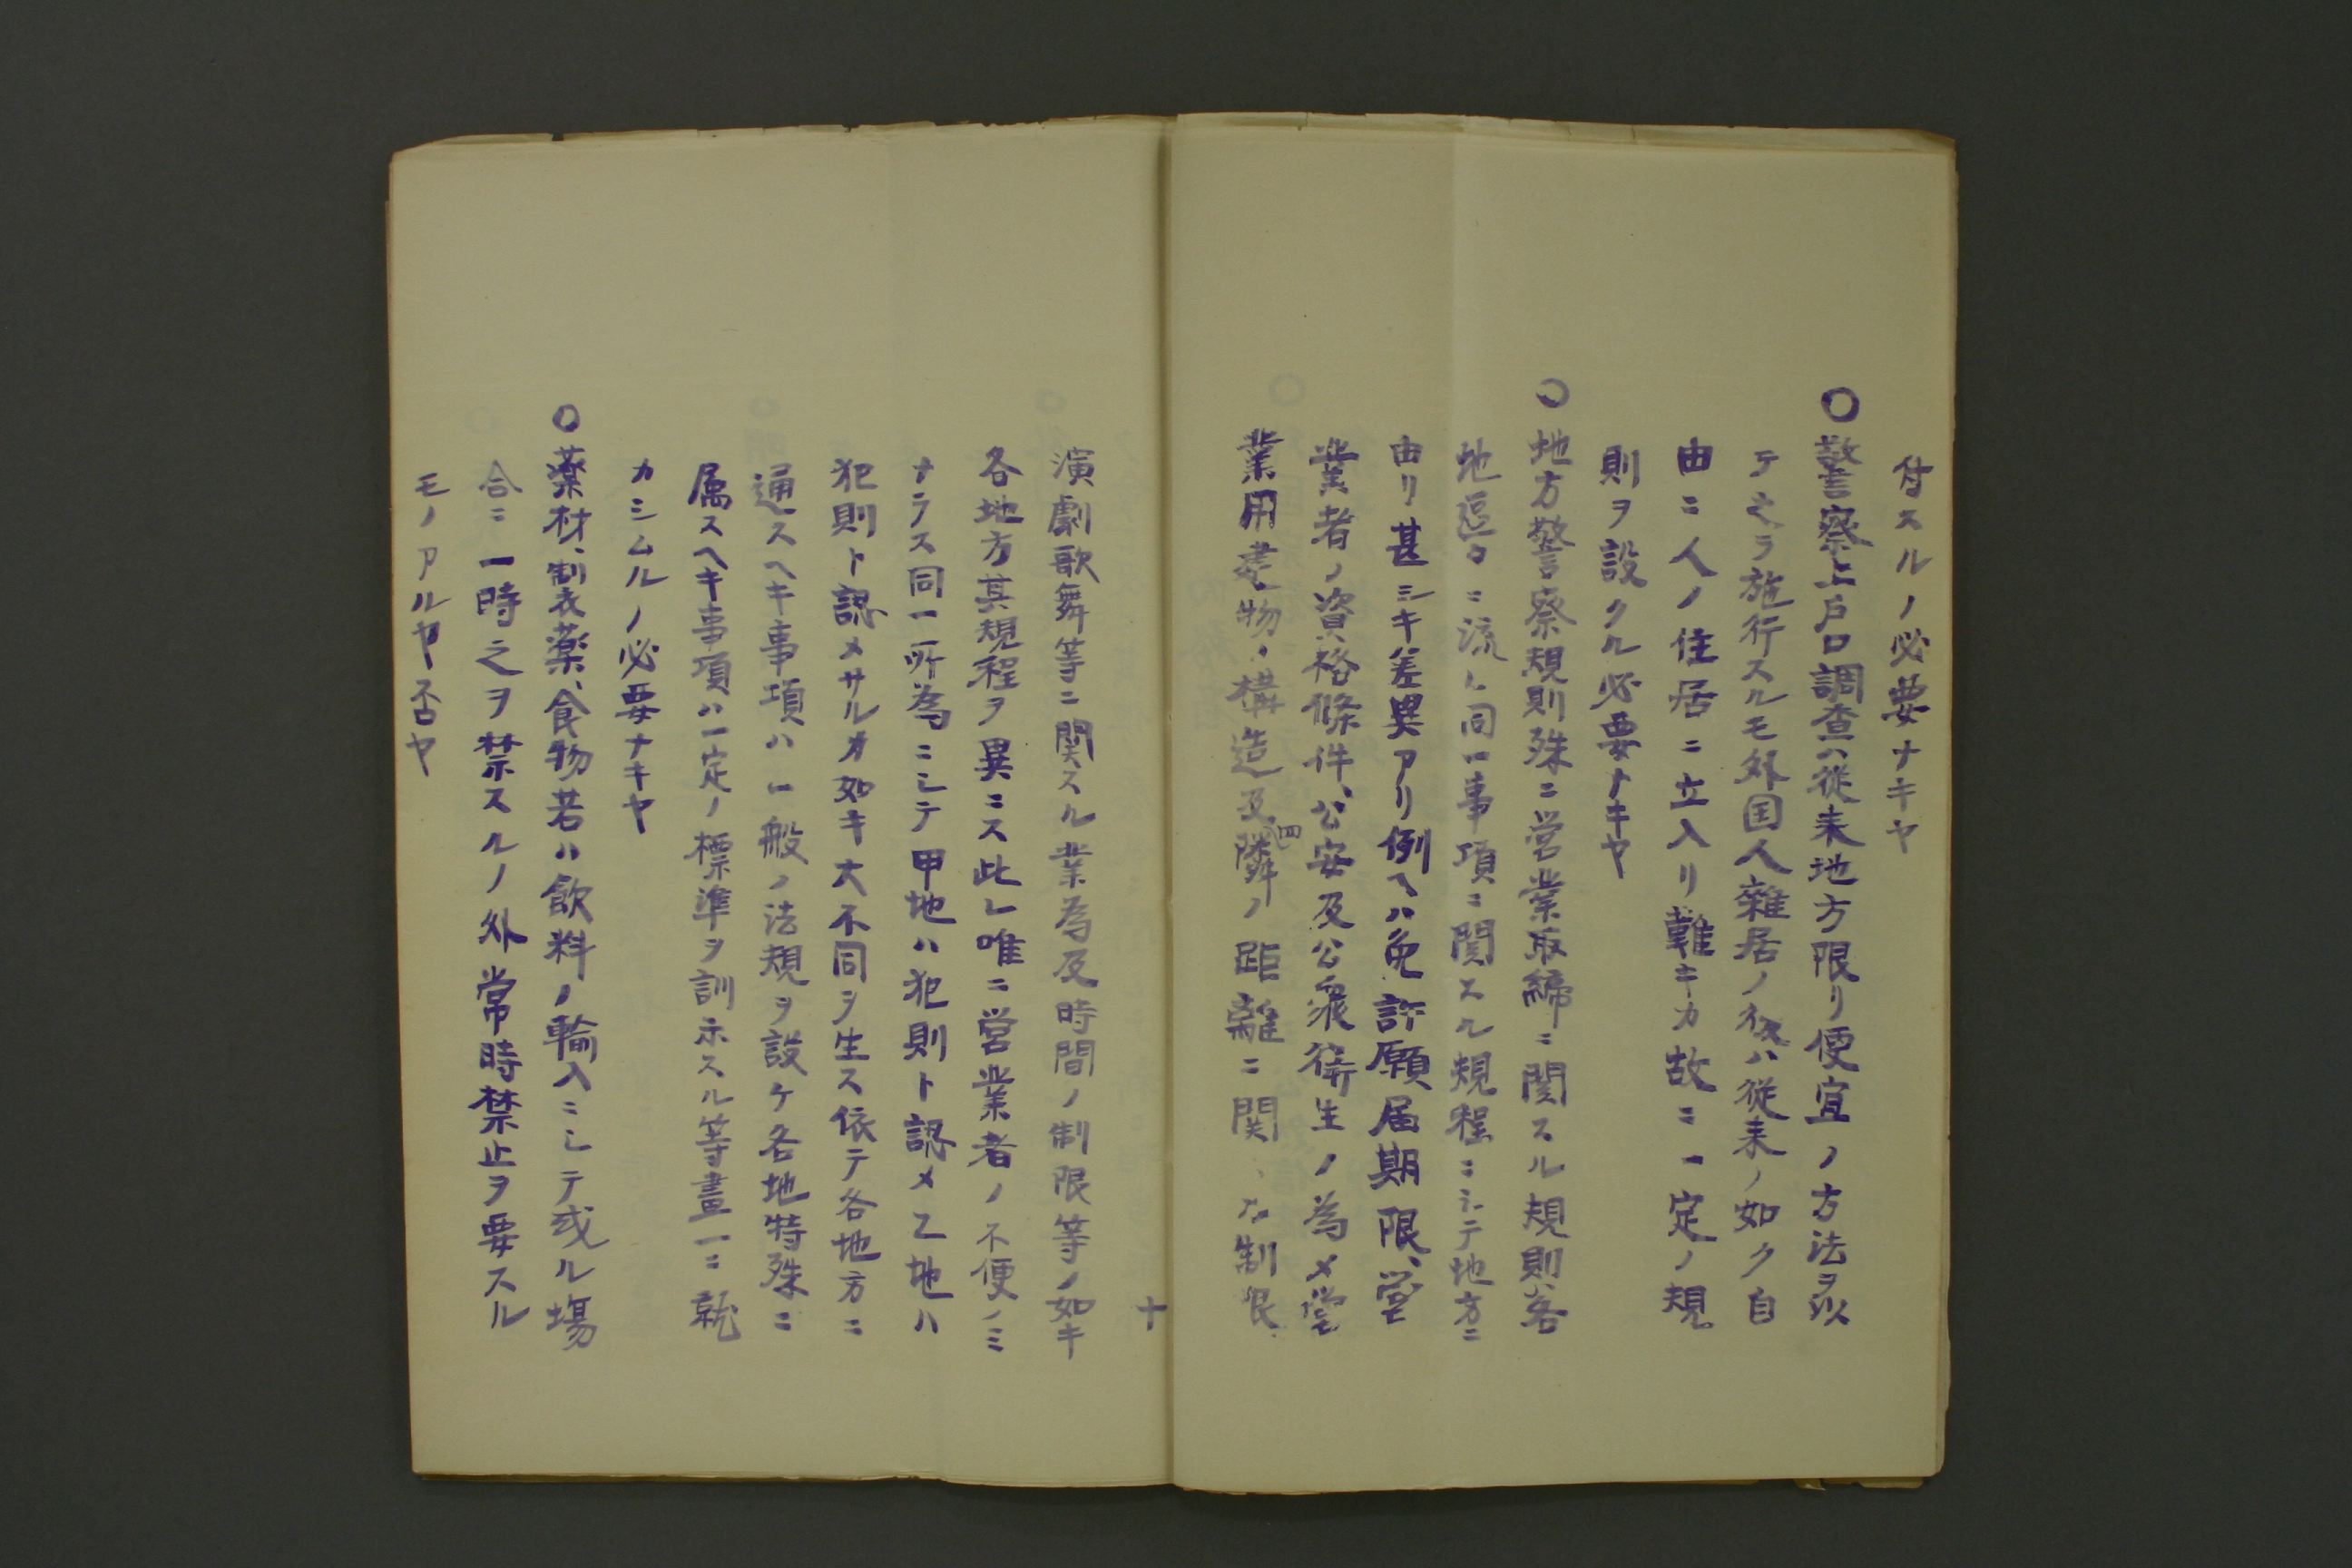 付スルノ必要ナキヤ
○警察上戸口調査ハ従来地方限リ便宜ノ方法ヲ以
テ之ヲ施行スルモ外国人雑居ノ後ハ従来ノ如ク自
由ニ人ノ住居ニ立入リ難キカ故ニ一定ノ規
則ヲ設クル必要ナキヤ
○地方警察規則殊ニ営業取締ニ関スル規則ハ各
地区々ニ流レ同一事項ニ関スル規程ニシテ地方ニ
由リ甚シキ差異アリ例ヘハ免許願届期限、営
業者ノ資格條件、公安及公衆衛生ノ為メ営
業用建物ノ構造及四隣ノ距離ニ関スル制限、
十
演劇歌舞等ニ関スル業為及時間ノ制限等ノ如キ
各地方其規程ヲ異ニス此レ唯ニ営業者ノ不便ノミ
ナラス同一所為ニシテ甲地ハ犯則ト認メ乙地ハ
犯則ト認メサルカ如キ大不同ヲ生ス依テ各地方ニ
通スヘキ事項ハ一般ノ法規ヲ設ケ各地特殊ニ
属スヘキ事項ハ一定ノ標準ヲ訓示スル等畫一ニ就
カシムルノ必要ナキヤ
○薬材、製薬、食物若ハ飲料ノ輸入ニシテ或ル場
合ニ一時之ヲ禁スルノ外常時禁止ヲ要スル
モノアルヤ否ヤ